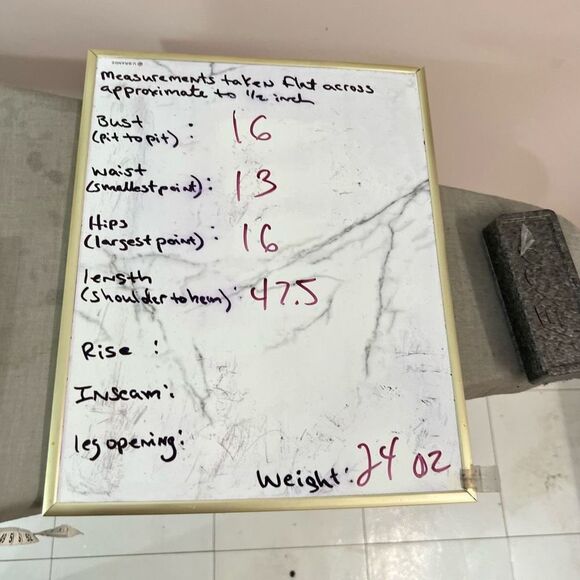 Measurements taken flat across
approximate to 1/2 inch
Bust
(pit to pit) : 16
Waist
(smallest point) : 13
Hips
(largest point) : 16
length
(shoulder to hem) : 47.5
Rise :
Inseam :
leg opening :
Weight : 24 oz